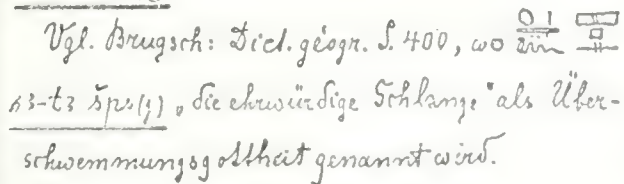 Vgl. Brugsch: Dict. géogr. S. 400, wo ein
s3-t3 šps(j) „die ehrwürdige Schlange“ als Über-
schwemmungsgottheit genannt wird.